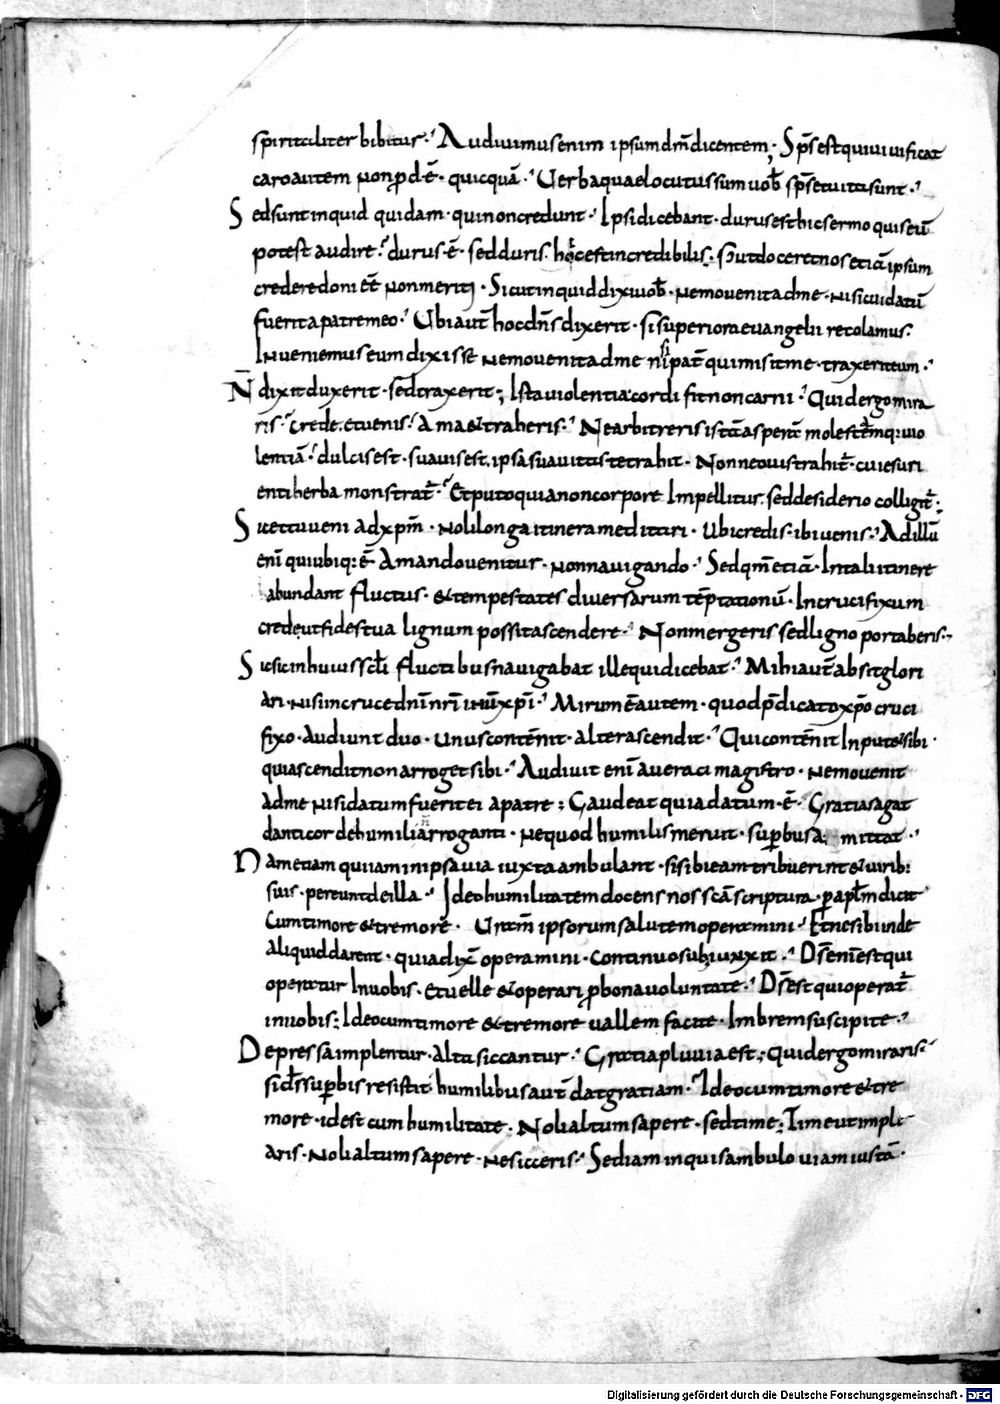 spiritaliter bibitur. Audiuimus enim ipsum dn̄m dicentem; Sp̄s est qui uiuificat
caro autem non ꝓd·ē· quicquā. Uerba quae locutus sum uob̄ sp̄s et uita sunt.
Sed sunt inquid quidam· qui non credunt. Ipsi dicebant· durus est hic sermo quis eū
potest audire? durus·ē· sed duris. hoc est incredibilis. Sed ut doceret nos etiā ipsum
credere doni eē̄ non meriti. Sicut inquid dixi uob̄· nemo uenit ad me· nisi cui datū
fuerit a patre meo. Ubi aut̄ hoc dn̄s dixerit· si superiora euangelii recolamus.
Inueniemus eum dixisse nemo uenit ad me nisi pat̄ qui misit me· traxerit eum.
N̄ dixit duxerit· sed traxerit; Ista uiolentia cordi fit non carni. Quid ergo mira
ris. Crede. et uenis. Ama & traheris. Ne arbitreris istā asperā molestāmq: uio
lentiā. dulcis est· suauis est. ipsa suauitas te trahit. Non ne ouis trahit̄· cui esuri
enti herba monstrat̄. Et puto quia non corpore Impellitur. sed desiderio colligit̄:
Sic et tu ueni ad xp̄m· noli longa itinera meditari· Ubi credis· ibi uenis. Ad illū
enī qui ubiq:·ē· Amando uenitur· non nauigando. Sed qm̄ etiā· In tali itinere
abundant fluctus· & tempestates diuersarum tēptationū· In crucifixum
crede ut fides tua lignum possit ascendere. Non mergeris sed ligno portaberis.
Sic sic in huius scl̄i fluctibus nauigabat ille qui dicebat. Mihi aut̄ absit glori
ari· nisi in cruce dnī nrī ihū xp̄i. Mirum ē autem· quod p̄dicato xp̄o cruci
fixo· Audiunt duo· unus contēnit· alter ascendit. Qui contēnit Inputet sibi·
qui ascendit non arroget sibi. Audiuit enī a ueraci magistro· nemo uenit
ad me nisi datum fuerit ei a patre: Gaudeat quia datum·ē· Gratias agat
danti corde humili n̄ arroganti· ne quod humilis meruit· supbus amittat.
Nam etiam qui iam in ipsa uia iuxta ambulant· si sibi eam tribuerint & uirib:
suis· pereunt de illa. Ideo humilitatem docens nos scā scriptura· ꝑ apl̄m dicit
Cum timore & tremore· Urām ipsorum salutem operamini. Et ne sibi inde
aliquid darent· quia dix̄ operamini· continuo subiunxit. Ds̄ enī est qui
operatur In uobis· et uelle & operari ꝓ bona uoluntate. Ds̄ est qui operat̄
in uobis: Ideo cum timore & tremore uallem facite· Imbrem suscipite.
Depressa implentur· alta siccantur. Gratia pluuia est; Quid ergo miraris
si ds̄ supbis resistit humilibus aut̄ dat gratiam. Ideo cum timore & tre
more· id est cum humilitate· Noli altum sapere· sed time; Time ut imple
aris· Noli altum sapere· ne sicceris. Sed iam inquis ambulo uiam iustā·